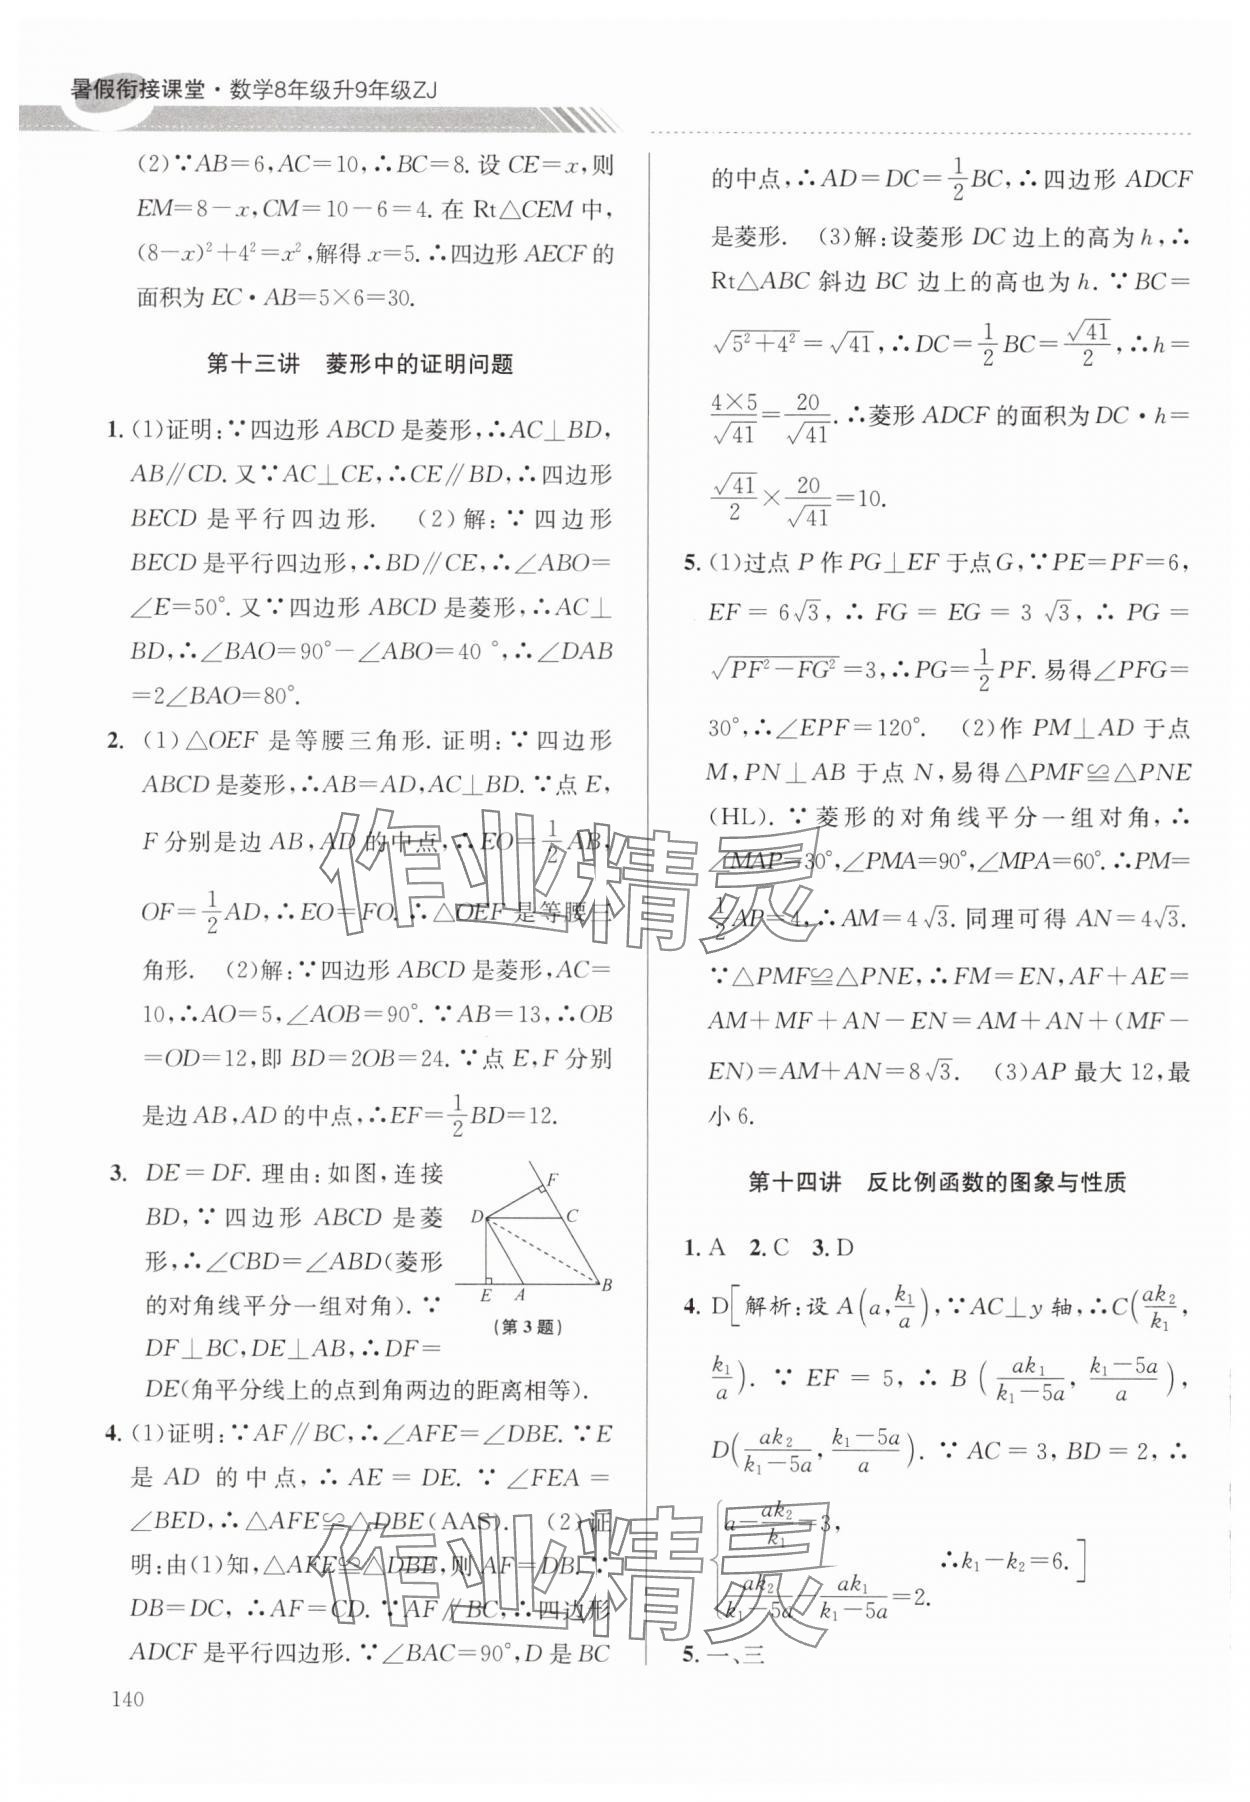 暑假衔接课堂·数学8年级升9年级ZJ
(2)∵AB=6,AC=10,∴BC=8.设CE=x,则
EM=8-x,CM=10-6=4.在Rt△CEM中,
(8-x)²+4²=x²,解得x=5.∴四边形AECF的
面积为EC·AB=5×6=30.
第十三讲 菱形中的证明问题
1.(1)证明:∵四边形ABCD是菱形,∴AC⊥BD,
AB∥CD.又∵AC⊥CE,∴CE∥BD,∴四边形
BECD是平行四边形. (2)解:∵四边形
BECD是平行四边形,∴BD∥CE,∴∠ABO=
∠E=50°.又∵四边形ABCD是菱形,∴AC⊥
BD,∴∠BAO=90°-∠ABO=40°,∴∠DAB
=2∠BAO=80°.
2.(1)△OEF是等腰三角形.证明:∵四边形
ABCD是菱形,∴AB=AD,AC⊥BD.∵点E,
F分别是边AB,AD的中点,∴EO=1/2AB,
OF=1/2AD,∴EO=FO.∴△OEF是等腰三
角形. (2)解:∵四边形ABCD是菱形,AC=
10,∴AO=5,∠AOB=90°.∵AB=13,∴OB
=OD=12,即BD=2OB=24.∵点E,F分别
是边AB,AD的中点,∴EF=1/2BD=12.
3. DE=DF.理由:如图,连接
BD,∵四边形ABCD是菱
形,∴∠CBD=∠ABD(菱形
的对角线平分一组对角).∵
DF⊥BC,DE⊥AB,∴DF=
DE(角平分线上的点到角两边的距离相等).
F
D
C
E
A
B
(第3题)
4.(1)证明:∵AF∥BC,∴∠AFE=∠DBE.∵E
是AD的中点,∴AE=DE.∵∠FEA=
∠BED,∴△AFE≌△DBE(AAS). (2)证
明:由(1)知,△AFE≌△DBE,则AF=DB.∵
DB=DC,∴AF=CD.∵AF∥BC,∴四边形
ADCF是平行四边形.∵∠BAC=90°,D是BC
140
的中点,∴AD=DC=1/2BC,∴四边形ADCF
是菱形. (3)解:设菱形DC边上的高为h,∴
Rt△ABC斜边BC边上的高也为h.∵BC=
√(5²+4²)=√41,∴DC=1/2BC=√41/2,∴h=
4×5/√41=20/√41.∴菱形ADCF的面积为DC·h=
√41/2×20/√41=10.
5.(1)过点P作PG⊥EF于点G,∵PE=PF=6,
EF=6√3,∴FG=EG=3√3,∴PG=
√(PF²-FG²)=3,∴PG=1/2PF.易得∠PFG=
30°,∴∠EPF=120°. (2)作PM⊥AD于点
M,PN⊥AB于点N,易得△PMF≌△PNE
(HL).∵菱形的对角线平分一组对角,∴
∠MAP=30°,∠PMA=90°,∠MPA=60°.∴PM=
1/2AP=4,∴AM=4√3.同理可得AN=4√3.
∵△PMF≌△PNE,∴FM=EN,AF+AE=
AM+MF+AN-EN=AM+AN+(MF-
EN)=AM+AN=8√3. (3)AP最大12,最
小6.
第十四讲 反比例函数的图象与性质
1.A 2.C 3.D
4. D[解析:设A(a,k₁/a),∵AC⊥y轴,∴C(ak₂/k₁,
k₁/a).∵EF=5,∴B(ak₁/(k₁-5a),(k₁-5a)/a),
D(ak₂/(k₁-5a),(k₁-5a)/a).∵AC=3,BD=2,∴
{a-ak₂/k₁=3,
ak₂/(k₁-5a)-ak₁/(k₁-5a)=2. ∴k₁-k₂=6.]
5.一、三
作业精灵
作业精灵